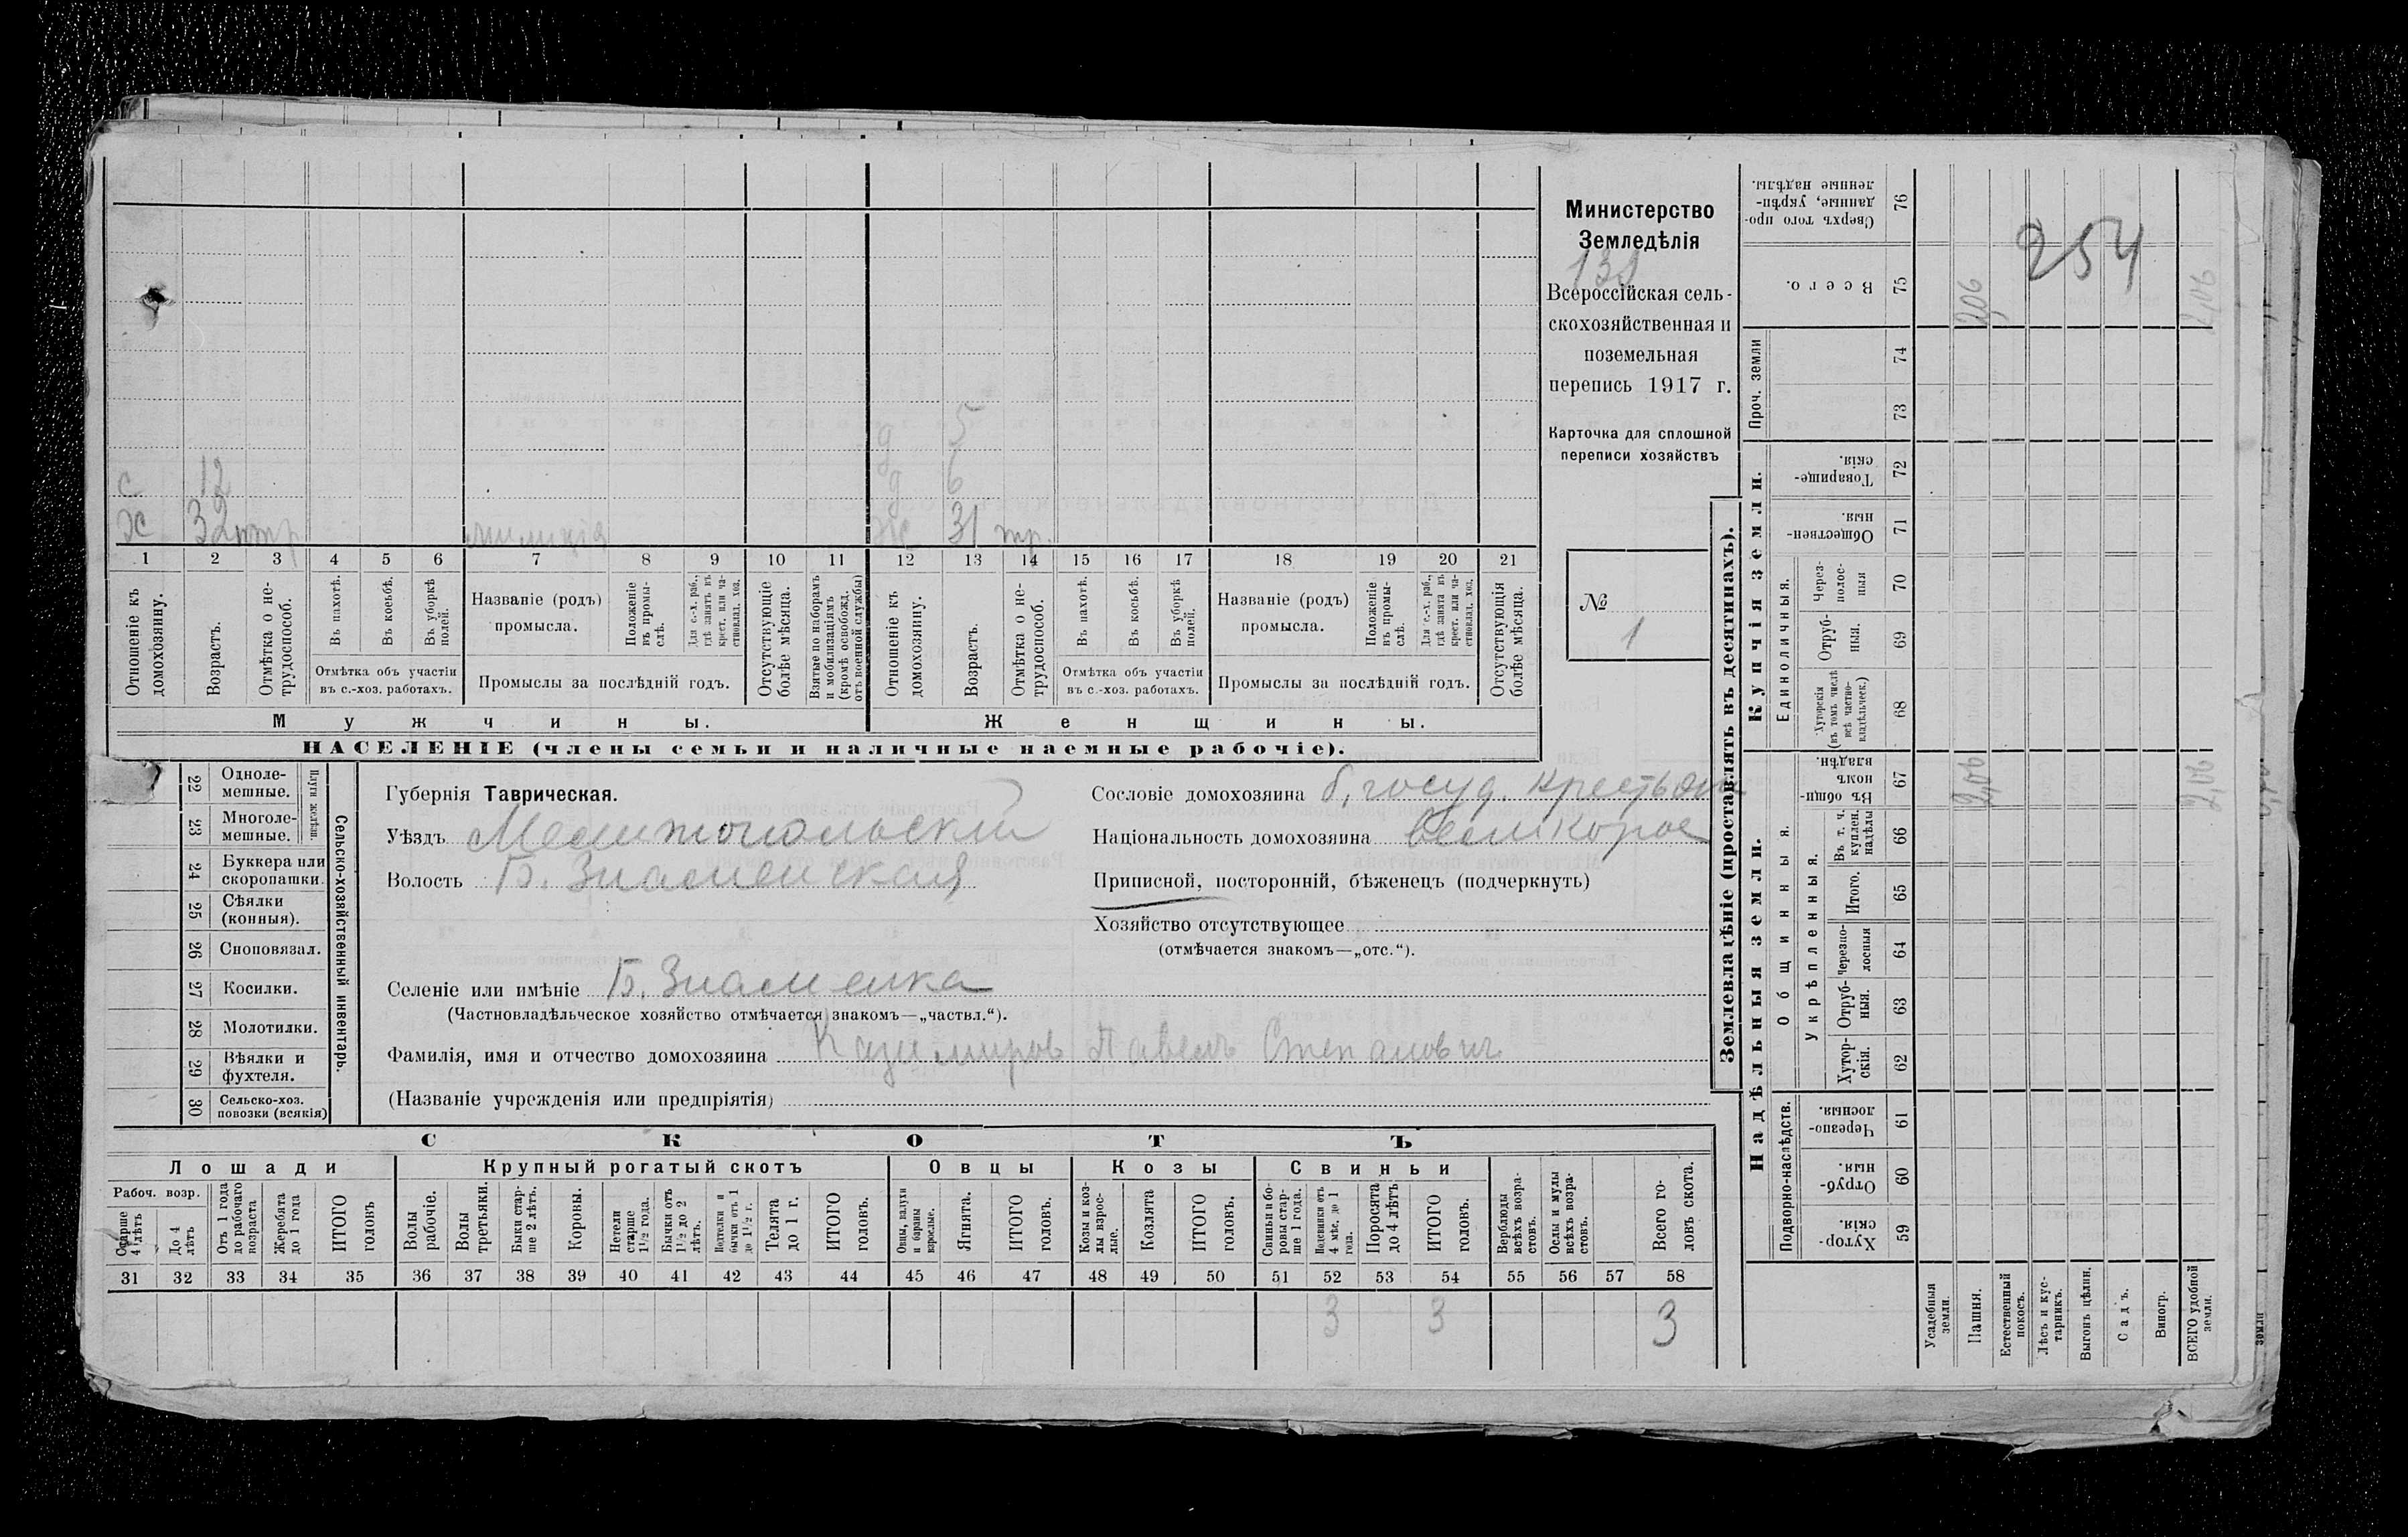 д 5
с 12 д 6
х 32 нтр милиція ж 31 тр.
1 2 3 4 5 6 7 8 9 10 11 12 13 14 15 16 17 18 19 20 21
Отношеніе къ домохозяину.
Возрастъ.
Отмѣтка о нетрудоспособ.
Въ пахотѣ.
Въ косьбѣ.
Въ уборкѣ полей.
Отмѣтка объ участіи
въ с.-хоз. работахъ.
Названіе (родъ)
промысла.
Положеніе въ промыслѣ.
Для с.-х. раб., гдѣ занятъ въ крест. или частновлад. хоз.
Промыслы за послѣдній годъ.
Отсутствующіе болѣе мѣсяца.
Взятые по наборамъ и мобилизаціямъ (кромѣ освобожд. отъ военной службы)
Отношеніе къ домохозяину.
Возрастъ.
Отмѣтка о нетрудоспособ.
Въ пахотѣ.
Въ косьбѣ.
Въ уборкѣ полей.
Отмѣтка объ участіи
въ с.-хоз. работахъ.
Названіе (родъ)
промысла.
Положеніе въ промыслѣ.
Для с.-х. раб., гдѣ занята въ крест. или частновлад. хоз.
Промыслы за послѣдній годъ.
Отсутствующія болѣе мѣсяца.
Мужчины. Женщины.
НАСЕЛЕНІЕ (члены семьи и наличные наемные рабочіе).
Министерство
Земледѣлія
138
Всероссійская сель-
скохозяйственная и
поземельная
перепись 1917 г.
Карточка для сплошной
переписи хозяйствъ
№
1
22 Одноле-
мешные.
23 Многоле-
мешные.
Плуги желѣзн.
24 Буккера или
скоропашки.
25 Сѣялки
(конныя).
26 Сноповязал.
27 Косилки.
28 Молотилки.
29 Вѣялки и
фухтеля.
30 Сельско-хоз.
повозки (всякія)
Сельско-хозяйственный инвентарь.
Губернія Таврическая.
Уѣздъ Мелитопольский
Волость Б. Знаменская
Сословіе домохозяина б. госуд. крестьян
Національность домохозяина великорос
Приписной, посторонній, бѣженецъ (подчеркнуть)
Хозяйство отсутствующее
(отмѣчается знакомъ—„отс.“).
Селеніе или имѣніе Б. Знаменка
(Частновладѣльческое хозяйство отмѣчается знакомъ—„частвл.“).
Фамилія, имя и отчество домохозяина Казимиров Павелъ Степанович
(Названіе учрежденія или предпріятія)
СКОТЪ
Лошади Крупный рогатый скотъ Овцы Козы Свиньи
Рабоч. возр.
Старше 4 лѣтъ
До 4 лѣтъ
Отъ 1 года до рабочаго возраста
Жеребята до 1 года
ИТОГО головъ
Волы рабочіе.
Волы третьяки.
Быки старше 2 лѣтъ.
Коровы.
Нетели старше 1½ года.
Бычки отъ 1½ до 2 лѣтъ.
Подтелки и бычки отъ 1 до 1½ г.
Телята до 1 г.
ИТОГО головъ.
Овцы, валухи и бараны взрослые.
Ягнята.
ИТОГО головъ.
Козы и козлы взрослые.
Козлята
ИТОГО головъ.
Свиньи и боровы старше 1 года.
Подсвинки отъ 4 мѣс. до 1 года.
Поросята до 4 лѣтъ
ИТОГО головъ.
Верблюды всѣхъ возрастовъ.
Ослы и мулы всѣхъ возрастовъ.
Всего головъ скота.
31 32 33 34 35 36 37 38 39 40 41 42 43 44 45 46 47 48 49 50 51 52 53 54 55 56 57 58
3 3 3
Землевладѣніе (проставлять въ десятинахъ).
Надѣльныя земли. Купчія земли. Проч. земли
Подворно-наслѣдств.
Общинныя.
Укрѣпленныя.
Единоличныя.
Хуторскія. 59
Отрубныя. 60
Черезполосныя. 61
Хуторскія. 62
Отрубныя. 63
Черезполосныя 64
Итого. 65
Въ т. ч. куплен. надѣлы 66
Въ общинномъ владѣн. 67
Хуторскія (въ томъ числѣ всѣ частновладѣльческ.) 68
Отрубныя. 69
Черезполосныя 70
Общественныя. 71
Товарищескія. 72
73
74
Всего. 75
Сверхъ того проданные, укрѣпленные надѣлы. 76
254
2,06 2,06
2,06 2,06
Усадебныя земли.
Пашня.
Естественный покосъ.
Лѣсъ и кустарникъ.
Выгонъ цѣлин.
Садъ.
Виногр.
ВСЕГО удобной земли.
земли